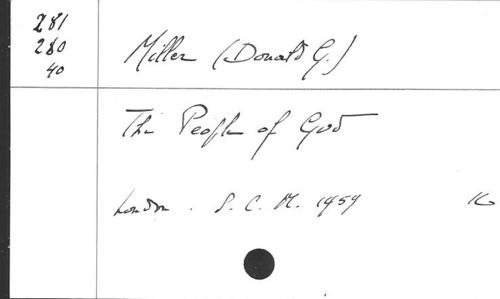 281
280
40
Miller (Donald G.)
The People of God
London . S. C. M. 1959 16